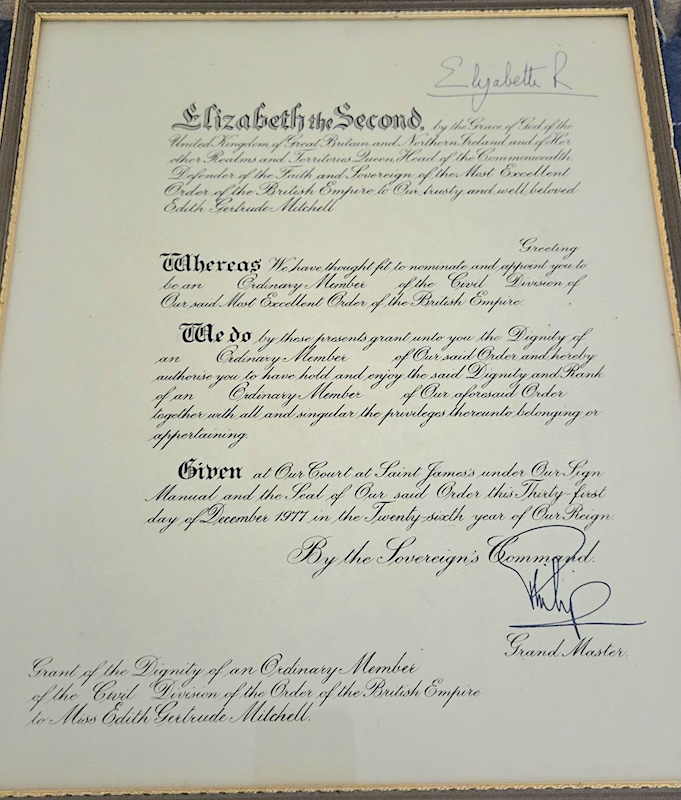 Elizabeth R
Elizabeth the Second, by the Grace of God of the
United Kingdom of Great Britain and Northern Ireland and of Her
other Realms and Territories Queen, Head of the Commonwealth,
Defender of the Faith and Sovereign of the Most Excellent
Order of the British Empire to Our trusty and well beloved
Edith Gertrude Mitchell
Greeting
Whereas We have thought fit to nominate and appoint you to
be an Ordinary Member of the Civil Division of
Our said Most Excellent Order of the British Empire.
We do by these presents grant unto you the Dignity of
an Ordinary Member of Our said Order and hereby
authorise you to have hold and enjoy the said Dignity and Rank
of an Ordinary Member of Our aforesaid Order
together with all and singular the privileges thereunto belonging or
appertaining.
Given at Our Court at Saint James's under Our Sign
Manual and the Seal of Our said Order this Thirty-first
day of December 1977 in the Twenty-sixth year of Our Reign.
By the Sovereign's Command.
Philip
Grand Master.
Grant of the Dignity of an Ordinary Member
of the Civil Division of the Order of the British Empire
to Miss Edith Gertrude Mitchell.